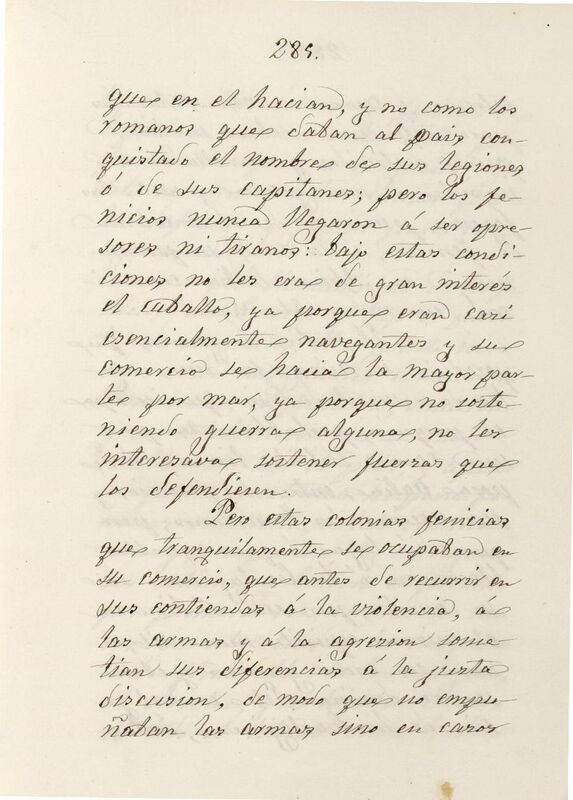 285.
que en el hacian, y no como los
romanos que daban al pais con-
quistado el nombre de sus legiones
ó de sus capitanes; pero los fe-
nicios nunca llegaron á ser opre-
sores ni tiranos: bajo estas condi-
ciones no les era de gran interés
el caballo, ya porque eran cazi
esencialmente navegantes y su
comercio se hacia la mayor par-
te por mar, ya porque no soste-
niendo guerra alguna, no les
interesava sostener fuerzas que
los defendiesen.
Pero estas colonias fenicias
que tranquilamente se ocupaban en
su comercio, que antes de recurrir en
sus contiendas á la violencia, á
las armas y á la agrezion some-
tian sus diferencias á la justa
discusion, de modo que no empu-
ñaban las armas sino en cazos